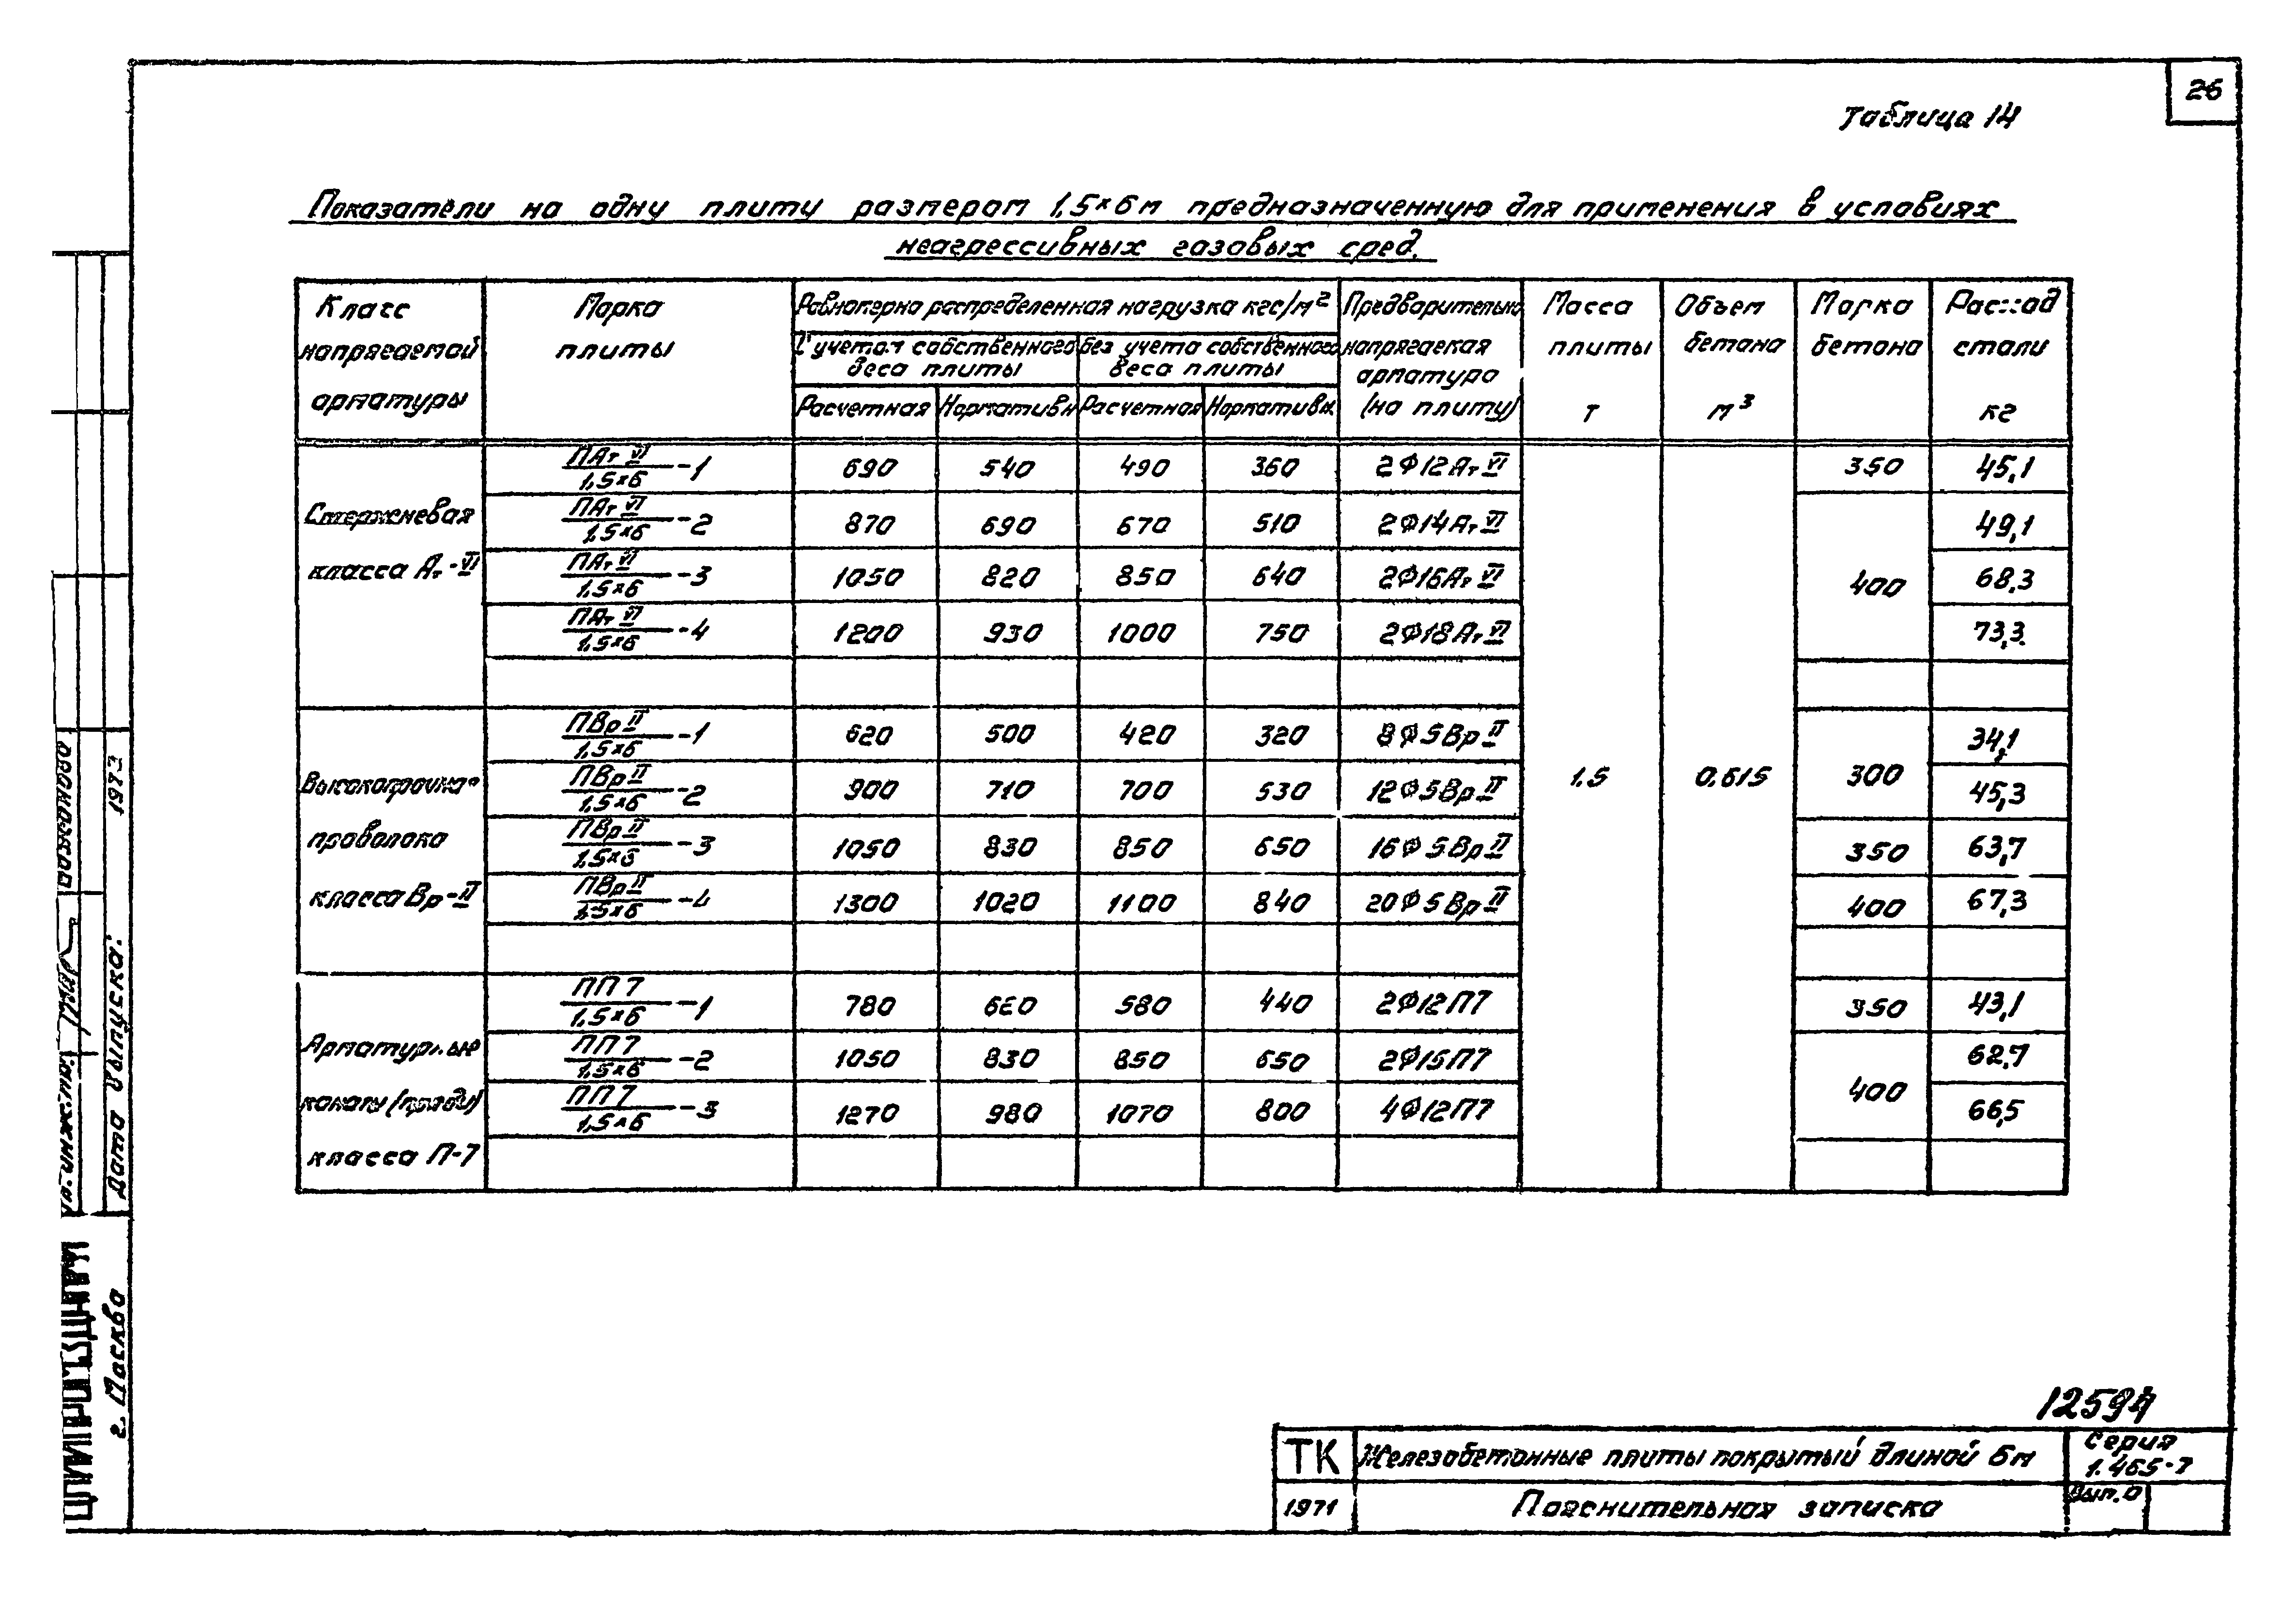 26
Таблица 14
Показатели на одну плиту размером 1,5×6м предназначенную для применения в условиях
неагрессивных газовых сред.
Класс напрягаемой арматуры
Марка плиты
Равномерно распределенная нагрузка кгс/м²
С учетом собственного веса плиты
без учета собственного веса плиты
Расчетная Нормативн Расчетная Нормативн
Предварительно напрягаемая арматура (на плиту)
Масса плиты т
Объем бетона м³
Марка бетона
Расход стали кг
Стержневая класса Ат-VI
ПАт VI/1,5×6 -1 690 540 490 360 2Ф12Ат VI 350 45,1
ПАт VI/1,5×6 -2 870 690 670 510 2Ф14Ат VI 400 49,1
ПАт VI/1,5×6 -3 1050 820 850 640 2Ф16Ат VI 68,3
ПАт VI/1,5×6 -4 1200 930 1000 750 2Ф18Ат VI 73,3
Высокопрочная проволока класса Вр-II
ПВр II/1,5×6 -1 620 500 420 320 8Ф5Вр II 1,5 0,615 300 34,1
ПВр II/1,5×6 -2 900 710 700 530 12Ф5Вр II 45,3
ПВр II/1,5×6 -3 1050 830 850 650 16Ф5Вр II 350 63,7
ПВр II/1,5×6 -4 1300 1020 1100 840 20Ф5Вр II 400 67,3
Арматурные канаты (пряди) класса П-7
ПП7/1,5×6 -1 780 620 580 440 2Ф12П7 350 43,1
ПП7/1,5×6 -2 1050 830 850 650 2Ф15П7 400 62,7
ПП7/1,5×6 -3 1270 980 1070 800 4Ф12П7 66,5
12594
ТК Железобетонные плиты покрытый длиной 6м Серия 1.465-7
1971 Пояснительная записка Вып. 0
Дата выпуска: 1973
г. Москва